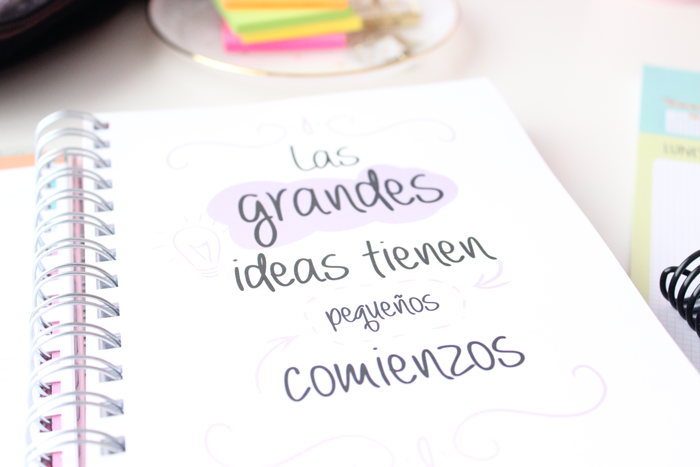 las
grandes
ideas tienen
pequeños
comienzos